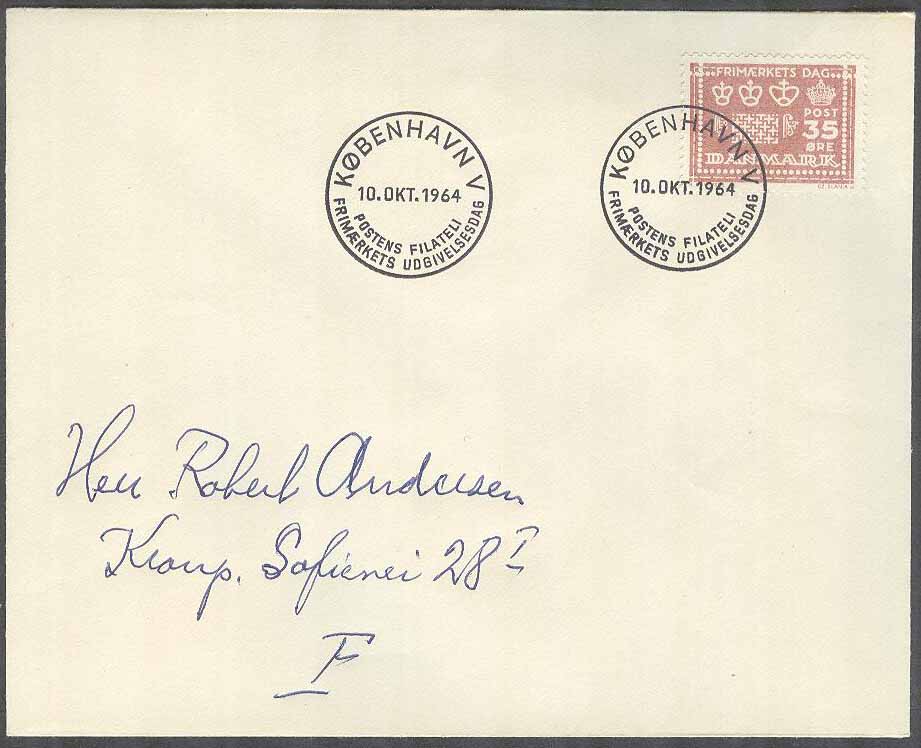 FRIMÆRKETS DAG
POST
35
ØRE
DANMARK
CZ. SLANIA
KØBENHAVN V
10.OKT.1964
POSTENS FILATELI
FRIMÆRKETS UDGIVELSESDAG
KØBENHAVN V
10.OKT.1964
POSTENS FILATELI
FRIMÆRKETS UDGIVELSESDAG
Herr Robert Andersen
Kronp. Sofievei 28 I
F